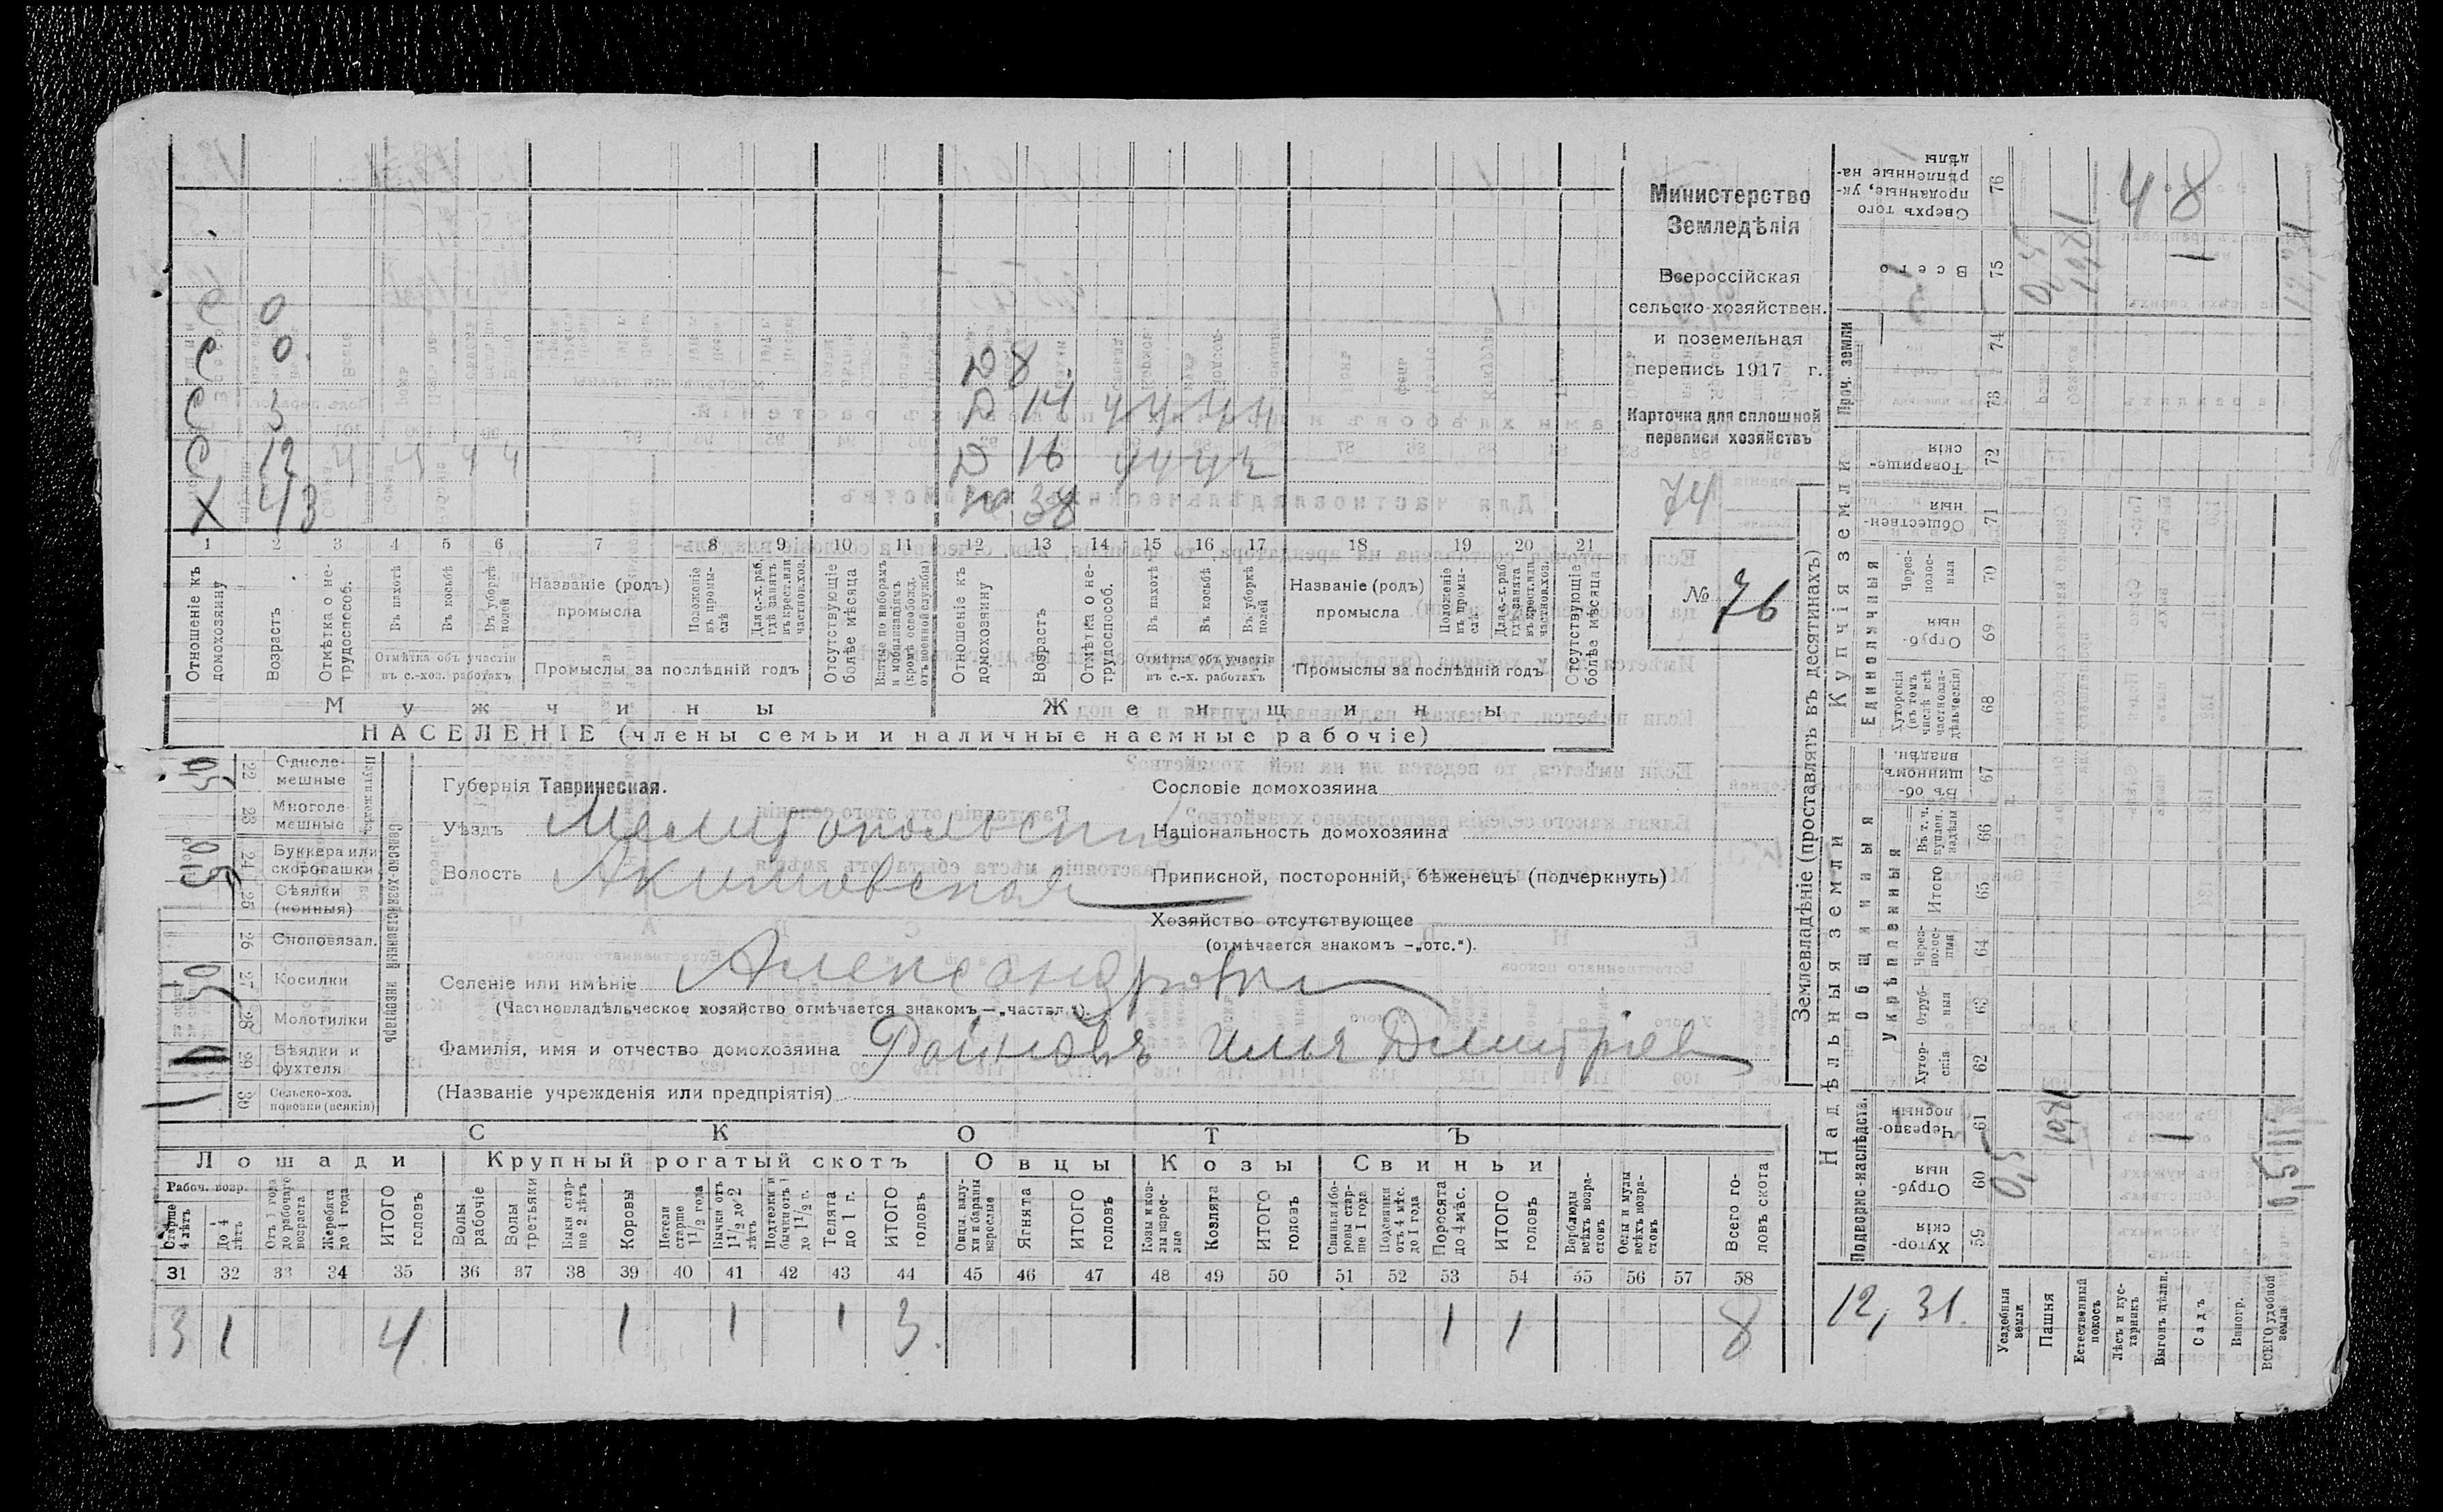 С 0
С 0. Д 8
С 3 Д 14 ч ч ч ч
С 12 ч ч ч ч Д 16
Х 43 38
1 2 3 4 5 6 7 8 9 10 11 12 13 14 15 16 17 18 19 20 21
Отношеніе къ домохозяину
Возрастъ
Отмѣтка о не-трудоспособ.
Въ пахотѣ
Въ косьбѣ
Въ уборкѣ полей
Отмѣтка объ участіи въ с.-хоз. работахъ
Названіе (родъ) промысла
Положеніе въ промы-слѣ
Для с.-х. раб. гдѣ занятъ въ крест. или частнов. хоз.
Промыслы за послѣдній годъ
Отсутствующіе болѣе мѣсяца
Взятые по наборамъ и мобилизаціямъ (кромѣ освобожд. отъ военной службы)
Отношеніе къ домохозяину
Возрастъ
Отмѣтка о не-трудоспособ.
Въ пахотѣ
Въ косьбѣ
Въ уборкѣ полей
Отмѣтка объ участіи въ с.-х. работахъ
Названіе (родъ) промысла
Положеніе въ промы-слѣ
Для с.-х. раб. гдѣ занята въ крест. или частнов. хоз.
Промыслы за послѣдній годъ
Отсутствующіе болѣе мѣсяца
Мужчины Женщины
НАСЕЛЕНІЕ (члены семьи и наличные наемные рабочіе)
Министерство
Земледѣлія
Всероссійская
сельско-хозяйствен.
и поземельная
перепись 1917 г.
Карточка для сплошной
переписи хозяйствъ
74
№ 76
22 Одноле-мешные
23 Многоле-мешные
24 Буккера или скоропашки
25 Сѣялки (конныя)
26 Сноповязал.
27 Косилки
28 Молотилки
29 Вѣялки и фухтеля
30 Сельско-хоз. повозки (всякія)
Сельско-хозяйственный инвентарь
Губернія Таврическая.
Уѣздъ Мелитопольскій
Волость Акимовская
Сословіе домохозяина
Національность домохозяина
Приписной, посторонній, бѣженецъ (подчеркнуть)
Хозяйство отсутствующее
(отмѣчается знакомъ —„отс.“).
Селеніе или имѣніе Александровка
(Частновладѣльческое хозяйство отмѣчается знакомъ—„частвл.“).
Фамилія, имя и отчество домохозяина Илья Дмитріев
(Названіе учрежденія или предпріятія)
СКОТЪ
Лошади Крупный рогатый скотъ Овцы Козы Свиньи
Рабоч. возр.
Старше 4 лѣтъ
До 4 лѣтъ
Отъ 1 года до рабочаго возраста
Жеребята до 1 года
ИТОГО головъ
Волы рабочіе
Волы третьяки
Быки стар-ше 2 лѣтъ
Коровы
Нетели старше 1 1/2 года
Бычки отъ 1 1/2 до 2 лѣтъ
Подтелки и бычки отъ 1 до 1 1/2 г.
Телята до 1 г.
ИТОГО головъ
Овцы, валу-хи и бараны взрослые
Ягнята
ИТОГО головъ
Козы и коз-лы взрос-лые
Козлята
ИТОГО головъ
Свиньи и бо-ровы стар-ше 1 года
Подсвинки отъ 4 мѣс. до 1 года
Поросята до 4 мѣс.
ИТОГО головъ
Верблюды всѣхъ возра-стовъ
Ослы и мулы всѣхъ возра-стовъ
Всего го-ловъ скота
31 32 33 34 35 36 37 38 39 40 41 42 43 44 45 46 47 48 49 50 51 52 53 54 55 56 57 58
3 1 4 1 1 1 3. 1 1 8
Землевладѣніе (проставлять въ десятинахъ)
Надѣльныя земли Купчія земли Проч. земли
Подворно-наслѣдств. Общинныя Единоличныя
Укрѣпленныя
Хутор-скія 59
Отруб-ныя 60
Черезпо-лосныя 61
Хутор-скія 62
Отруб-ныя 63
Через-полос-ныя 64
Итого 65
Въ т. ч. куплен. надѣлы 66
Въ об-щинномъ владѣн. 67
Хуторскія (въ томъ числѣ всѣ частновла-дѣльческія) 68
Отруб-ныя 69
Через-полос-ныя 70
Обществен-ныя 71
Товарище-скія 72
73
74
Всего 75
Сверхъ того проданные, ук-рѣпленные на-дѣлы 76
12, 31.
Усадебныя земли
Пашня
Естественный покосъ
Лѣсъ и кус-тарникъ
Выгонъ дѣлян.
Садъ
Виногр.
ВСЕГО удобной земли
48